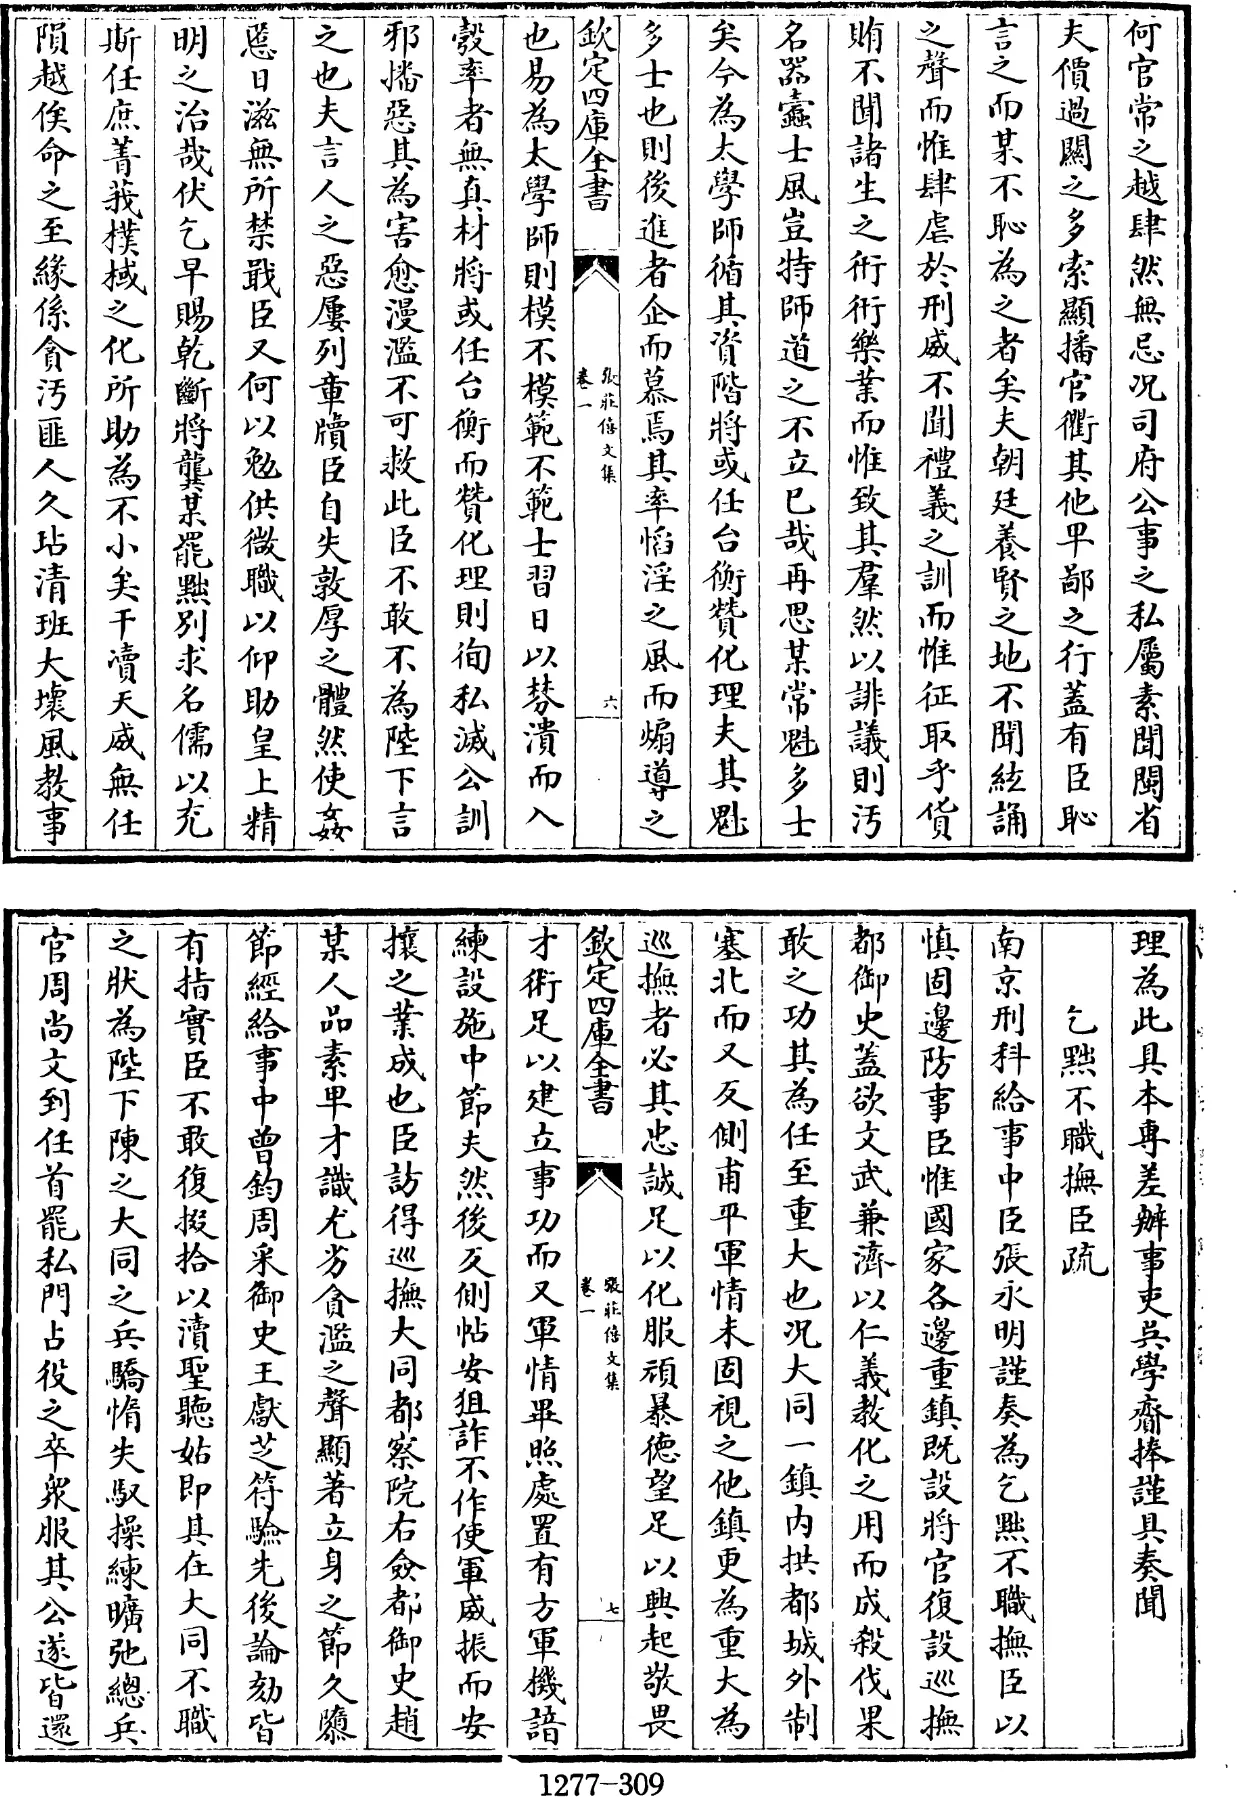 何官常之越肆然無忌况司府公事之私屬素聞閩省
夫價過闗之多索顯播官衢其他卑鄙之行蓋有臣恥
言之而某不恥為之者矣夫朝廷養賢之地不聞絃誦
之聲而惟肆虐於刑威不聞禮義之訓而惟征取乎貨
賄不聞諸生之衎衎樂業而惟致其羣然以誹議則汚
名器蠧士風豈特師道之不立已哉再思某常魁多士
矣今為太學師循其資階將或任台衡賛化理夫其魁
多士也則後進者企而慕焉其率慆淫之風而煽導之
欽定四庫全書
張莊僖文集
卷一
六
也易為太學師則模不模範不範士習日以棼潰而入
彀率者無真材將或任台衡而賛化理則徇私滅公訓
邪播惡其為害愈漫濫不可救此臣不敢不為陛下言
之也夫言人之惡屢列章牘臣自失敦厚之體然使姦
慝日滋無所禁戢臣又何以勉供微職以仰助皇上精
明之治哉伏乞早賜乾斷將龔某罷黜别求名儒以充
斯任庶菁莪樸棫之化所助為不小矣干瀆天威無任
隕越俟命之至緣係貪汚匪人久玷清班大壞風教事
理為此具本專差辦事吏吳學齋捧謹具奏聞
乞黜不職撫臣疏
南京刑科給事中臣張永明謹奏為乞黜不職撫臣以
慎固邊防事臣惟國家各邊重鎮既設將官復設巡撫
都御史蓋欲文武兼濟以仁義教化之用而成殺伐果
敢之功其為任至重大也况大同一鎮内拱都城外制
塞北而又反側甫平軍情未固視之他鎮更為重大為
巡撫者必其忠誠足以化服頑暴德望足以興起敬畏
欽定四庫全書
張莊僖文集
卷一
七
才術足以建立事功而又軍情畢照處置有方軍機諳
練設施中節夫然後反側帖安狙詐不作使軍威振而安
攘之業成也臣訪得巡撫大同都察院右僉都御史趙
某人品素卑才識尤劣貪濫之聲顯著立身之節久隳
節經給事中曾鈞周采御史王獻芝符驗先後論劾皆
有指實臣不敢復掇拾以瀆聖聽姑即其在大同不職
之狀為陛下陳之大同之兵驕惰失馭操練曠弛總兵
官周尚文到任首罷私門占役之卒衆服其公遂皆還
1277-309